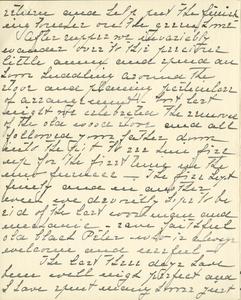 return and help put the finish
ing touches on the green room
After supper we invariably
wander over to this peculiar
little army and spend an
hour huddling around the
stove and planning particulars
of arrangements. Last
night we celebrated the removal
of the old wood stove and all
followed your father down
into the pit. There one fire
up for the first time in the
new furnace — The fire went
finely and in another
week we devoutly hope to be
rid of the last workman and
mechanic — save faithful
old black Peter — who is always
welcome and useful —
The last three days have
been well nigh perfect and
I have spent many hours just